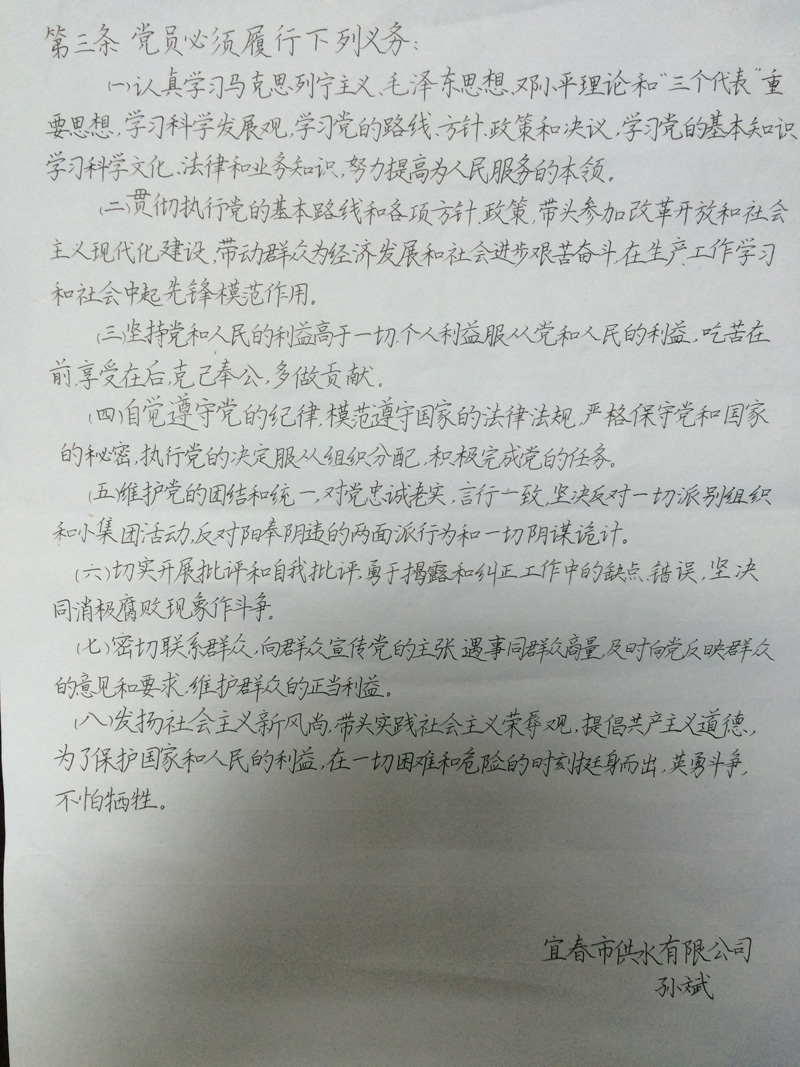 第三条 党员必须履行下列义务：
(一)认真学习马克思列宁主义、毛泽东思想、邓小平理论和“三个代表”重
要思想，学习科学发展观，学习党的路线、方针、政策和决议，学习党的基本知识
学习科学文化、法律和业务知识，努力提高为人民服务的本领。
(二)贯彻执行党的基本路线和各项方针、政策，带头参加改革开放和社会
主义现代化建设，带动群众为经济发展和社会进步艰苦奋斗，在生产、工作学习
和社会中起先锋模范作用。
(三)坚持党和人民的利益高于一切，个人利益服从党和人民的利益，吃苦在
前，享受在后，克己奉公，多做贡献。
(四)自觉遵守党的纪律，模范遵守国家的法律法规，严格保守党和国家
的秘密，执行党的决定服从组织分配，积极完成党的任务。
(五)维护党的团结和统一，对党忠诚老实，言行一致，坚决反对一切派别组织
和小集团活动，反对阳奉阴违的两面派行为和一切阴谋诡计。
(六)切实开展批评和自我批评，勇于揭露和纠正工作中的缺点、错误，坚决
同消极腐败现象作斗争。
(七)密切联系群众，向群众宣传党的主张，遇事同群众商量，及时向党反映群众
的意见和要求，维护群众的正当利益。
(八)发扬社会主义新风尚，带头实践社会主义荣辱观，提倡共产主义道德，
为了保护国家和人民的利益，在一切困难和危险的时刻挺身而出，英勇斗争，
不怕牺牲。
宜春市供水有限公司
孙斌